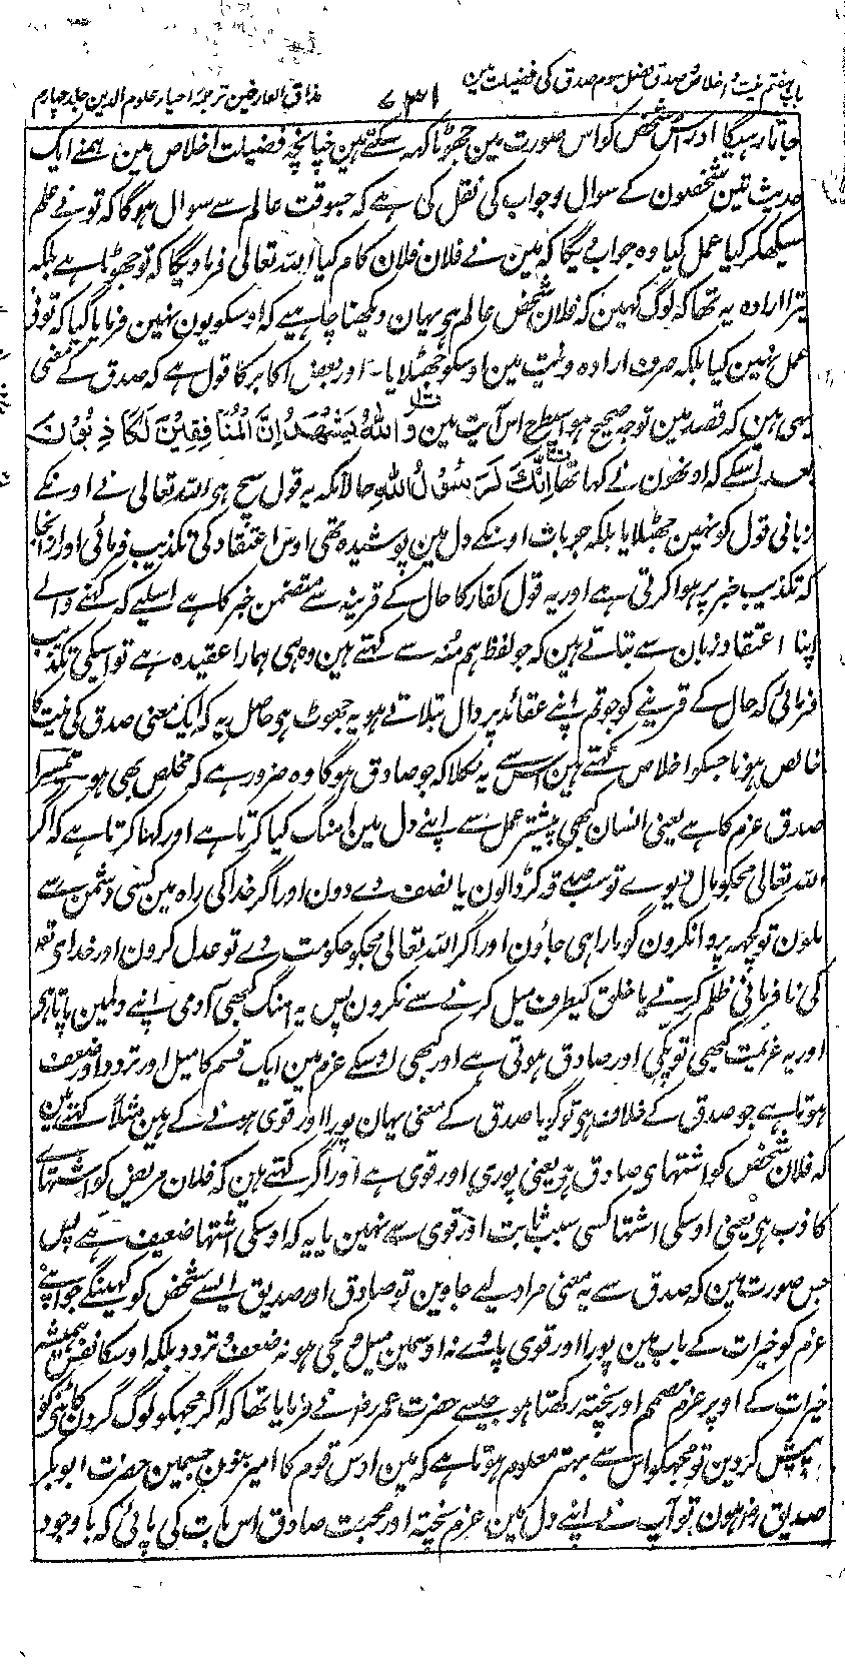 باب ہفتم نیت و اخلاص و صدق فصل سوم صدق کی فضیلت مین
۴۳۱
مذاق العارفین ترجمہ احیاء علوم الدین جلد چہارم
جاتا رہیگا اور اس شخص کو اس صورت مین جھوٹا کہہ سکتے ہین چنانچہ فضیلت اخلاص مین ہمنے ایک
حدیث تین شخصون کے سوال وجواب کی نقل کی ہے کہ جسوقت عالم سے سوال ہوگا کہ تونے علم
سیکھکر کیا عمل کیا وہ جواب دیگا کہ مین نے فلان فلان کام کیا اللہ تعالی فرماویگا کہ تو جھوٹا ہے بلکہ
تیرا ارادہ یہ تھا کہ لوگ کہین کہ فلان شخص عالم ہی یہان دیکھنا چاہیے کہ اوسکو یون نہین فرمایا گیا کہ تونی
عمل نہین کیا بلکہ صرف ارادہ ونیت مین اوسکو جھٹلایا۔ اور بعض اکابر کا قول ہے کہ صدق کے معنی
یہی ہین کہ قصد مین توجہ صحیح ہو اسیطرح اس آیت مین وَاللّٰهُ يَشْهَدُ اِنَّ الْمُنَافِقِيْنَ لَكَاذِبُوْنَ
بعد اسکے کہ اونھون نے کہا تھا اِنَّكَ لَرَسُوْلُ اللّٰهِ حالانکہ یہ قول سچ ہی اللہ تعالی نے اونکے
زبانی قول کو نہین جھٹلایا بلکہ جو بات اونکے دل مین پوشیدہ تھی اوس اعتقاد کی تکذیب فرمائی اور ازانجا
کہ تکذیب خبر پر ہوا کرتی ہے اور یہ قول کفار کا حال کے قرینہ سے متضمن خبر کا ہے اسلیے کہ کہنے والے
اپنا اعتقاد زبان سے بتاتے ہین کہ جو لفظ ہم منہ سے کہتے ہین وہ ہی ہمارا عقیدہ ہے تو اسکی تکذیب
فرمائی کہ حال کے قرینے کو جو تم اپنے عقائد پر دال بتلاتے ہو یہ جھوٹ ہی حاصل یہ کہ ایک معنی صدق کی نیت کا
خالص ہونا جسکو اخلاص کہتے ہین اس سے یہ نکلا کہ جو صادق ہوگا وہ ضرور ہے کہ مخلص بھی ہو تیسرا
صدق عزم کا ہے یعنی انسان کبھی پیشتر عمل سے اپنے دل مین امنگ کیا کرتا ہے اور کہا کرتا ہے کہ اگر
اللہ تعالی مجکو مال دیوے تو سب صدقہ کر ڈالون یا نصف دے دون اور اگر خدا کی راہ مین کسی دشمن سے
ملون تو کچھ پروا نکرون گو مارا ہی جاؤن اور اگر اللہ تعالی مجکو حکومت دے تو عدل کرون اور خدای تعہ
کی نافرمانی ظلم کرنے یا خلق کیطرف میل کرنے سے نکرون پس یہ امنگ کبھی آدمی اپنے دلمین پاتا ہی
اور یہ عزیمت کبھی تو پکی اور صادق ہوتی ہے اور کبھی اوسکے عزم مین ایک قسم کا میل اور تردد اور ضعف
ہوتا ہے جو صدق کے خلاف ہی تو گویا صدق کے معنی یہان پورا اور قوی ہونے کے ہین مثلاً کہتے ہین
کہ فلان شخص کو اشتہای صادق ہی یعنی پوری اور قوی ہے اور اگر کہتے ہین کہ فلان مریض کو اشتہاے
کاذب ہی یعنی اوسکی اشتہا کسی سبب ثابت اور قوی سے نہین یا یہ کہ اوسکی اشتہا ضعیف ہے پس
جس صورت مین کہ صدق سے یہ معنی مراد لیے جاوین تو صادق اور صدیق ایسے شخص کو کہینگے جو اپنے
عزم کو خیرات کے باب مین پورا اور قوی پاوے نہ اوسمین میل و کجی ہو نہ ضعف و تردد بلکہ اوسکا نفس ہمیشہ
خیرات کے اوپر عزم مصمم اور پختہ رکھتا ہو جیسے حضرت عمر رضہ نے فرمایا تھا کہ اگر مجھکو لوگ گردن کاٹنی کو
پیش کردین تو مجھکو اس سے بہتر معلوم ہوتا ہے کہ مین اوس قوم کا امیر بنون جسمین حضرت ابوبکر
صدیق رضہ ہون تو آپ نے اپنے دل مین عزم پختہ اور محبت صادق اس بات کی پائی کہ باوجود